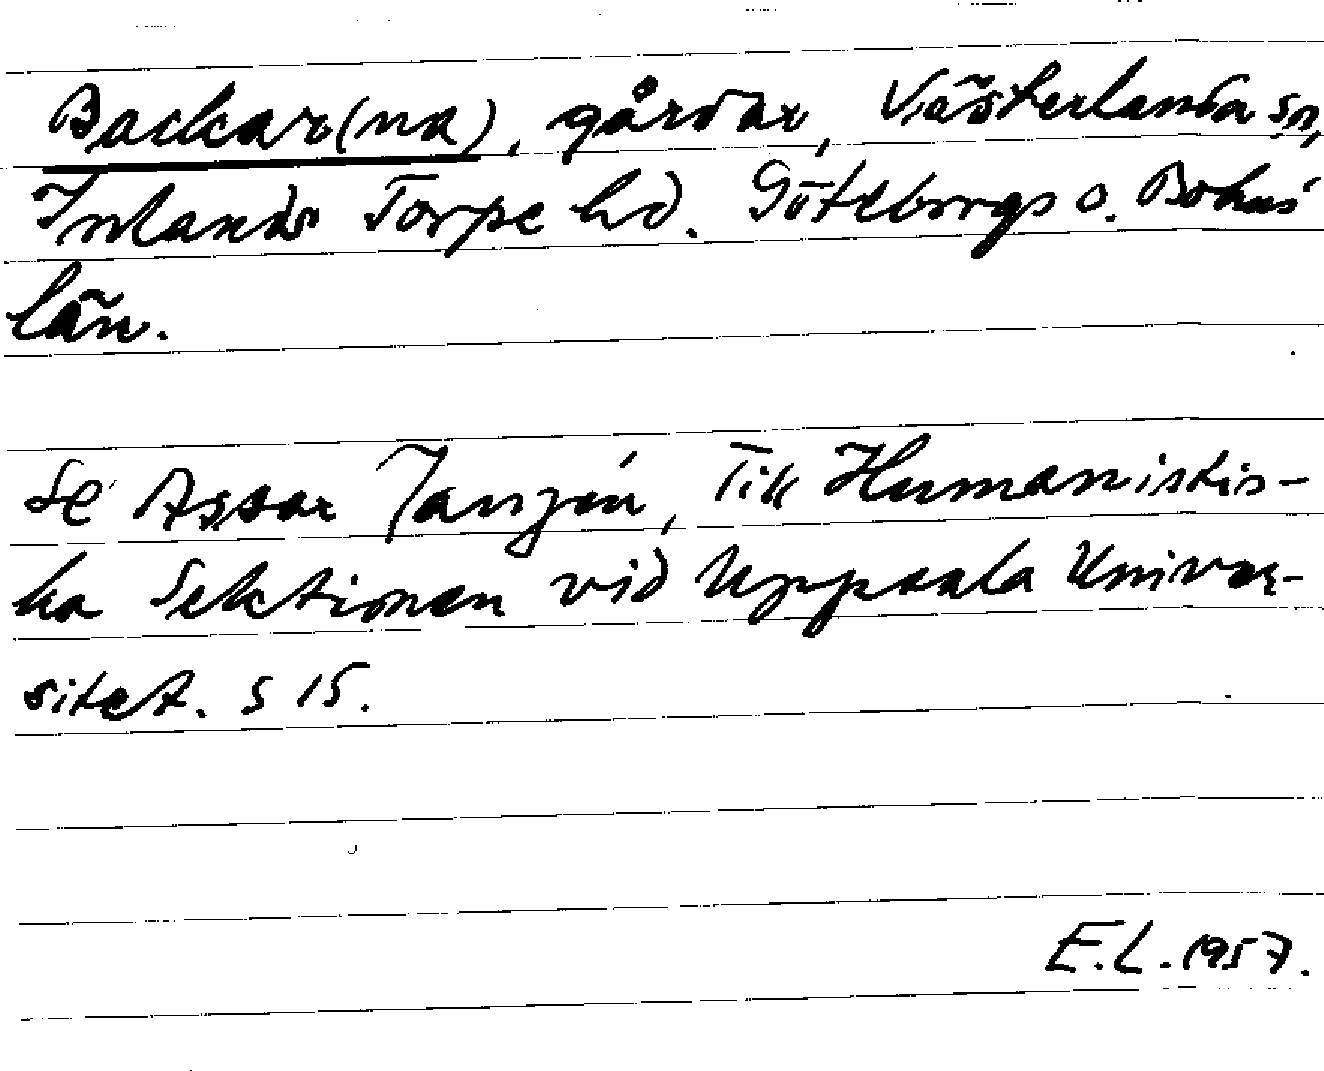 Backar(na), gårdar, Västerlanda sn,
Inlands Torpe hd. Göteborgs o. Bohus
län.
Se Assar Janzén, Till Humanistis-
ka Sektionen vid Uppsala Univer-
sitet. s 15.
E.L. 1957.